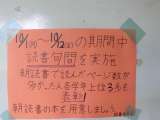 10/1(月)～10/12(金)の期間中
読書旬間を実施
朝読書で読んだページ数が
多かった人各学年上位3名を
表彰!
朝読書の本を用意しましょう